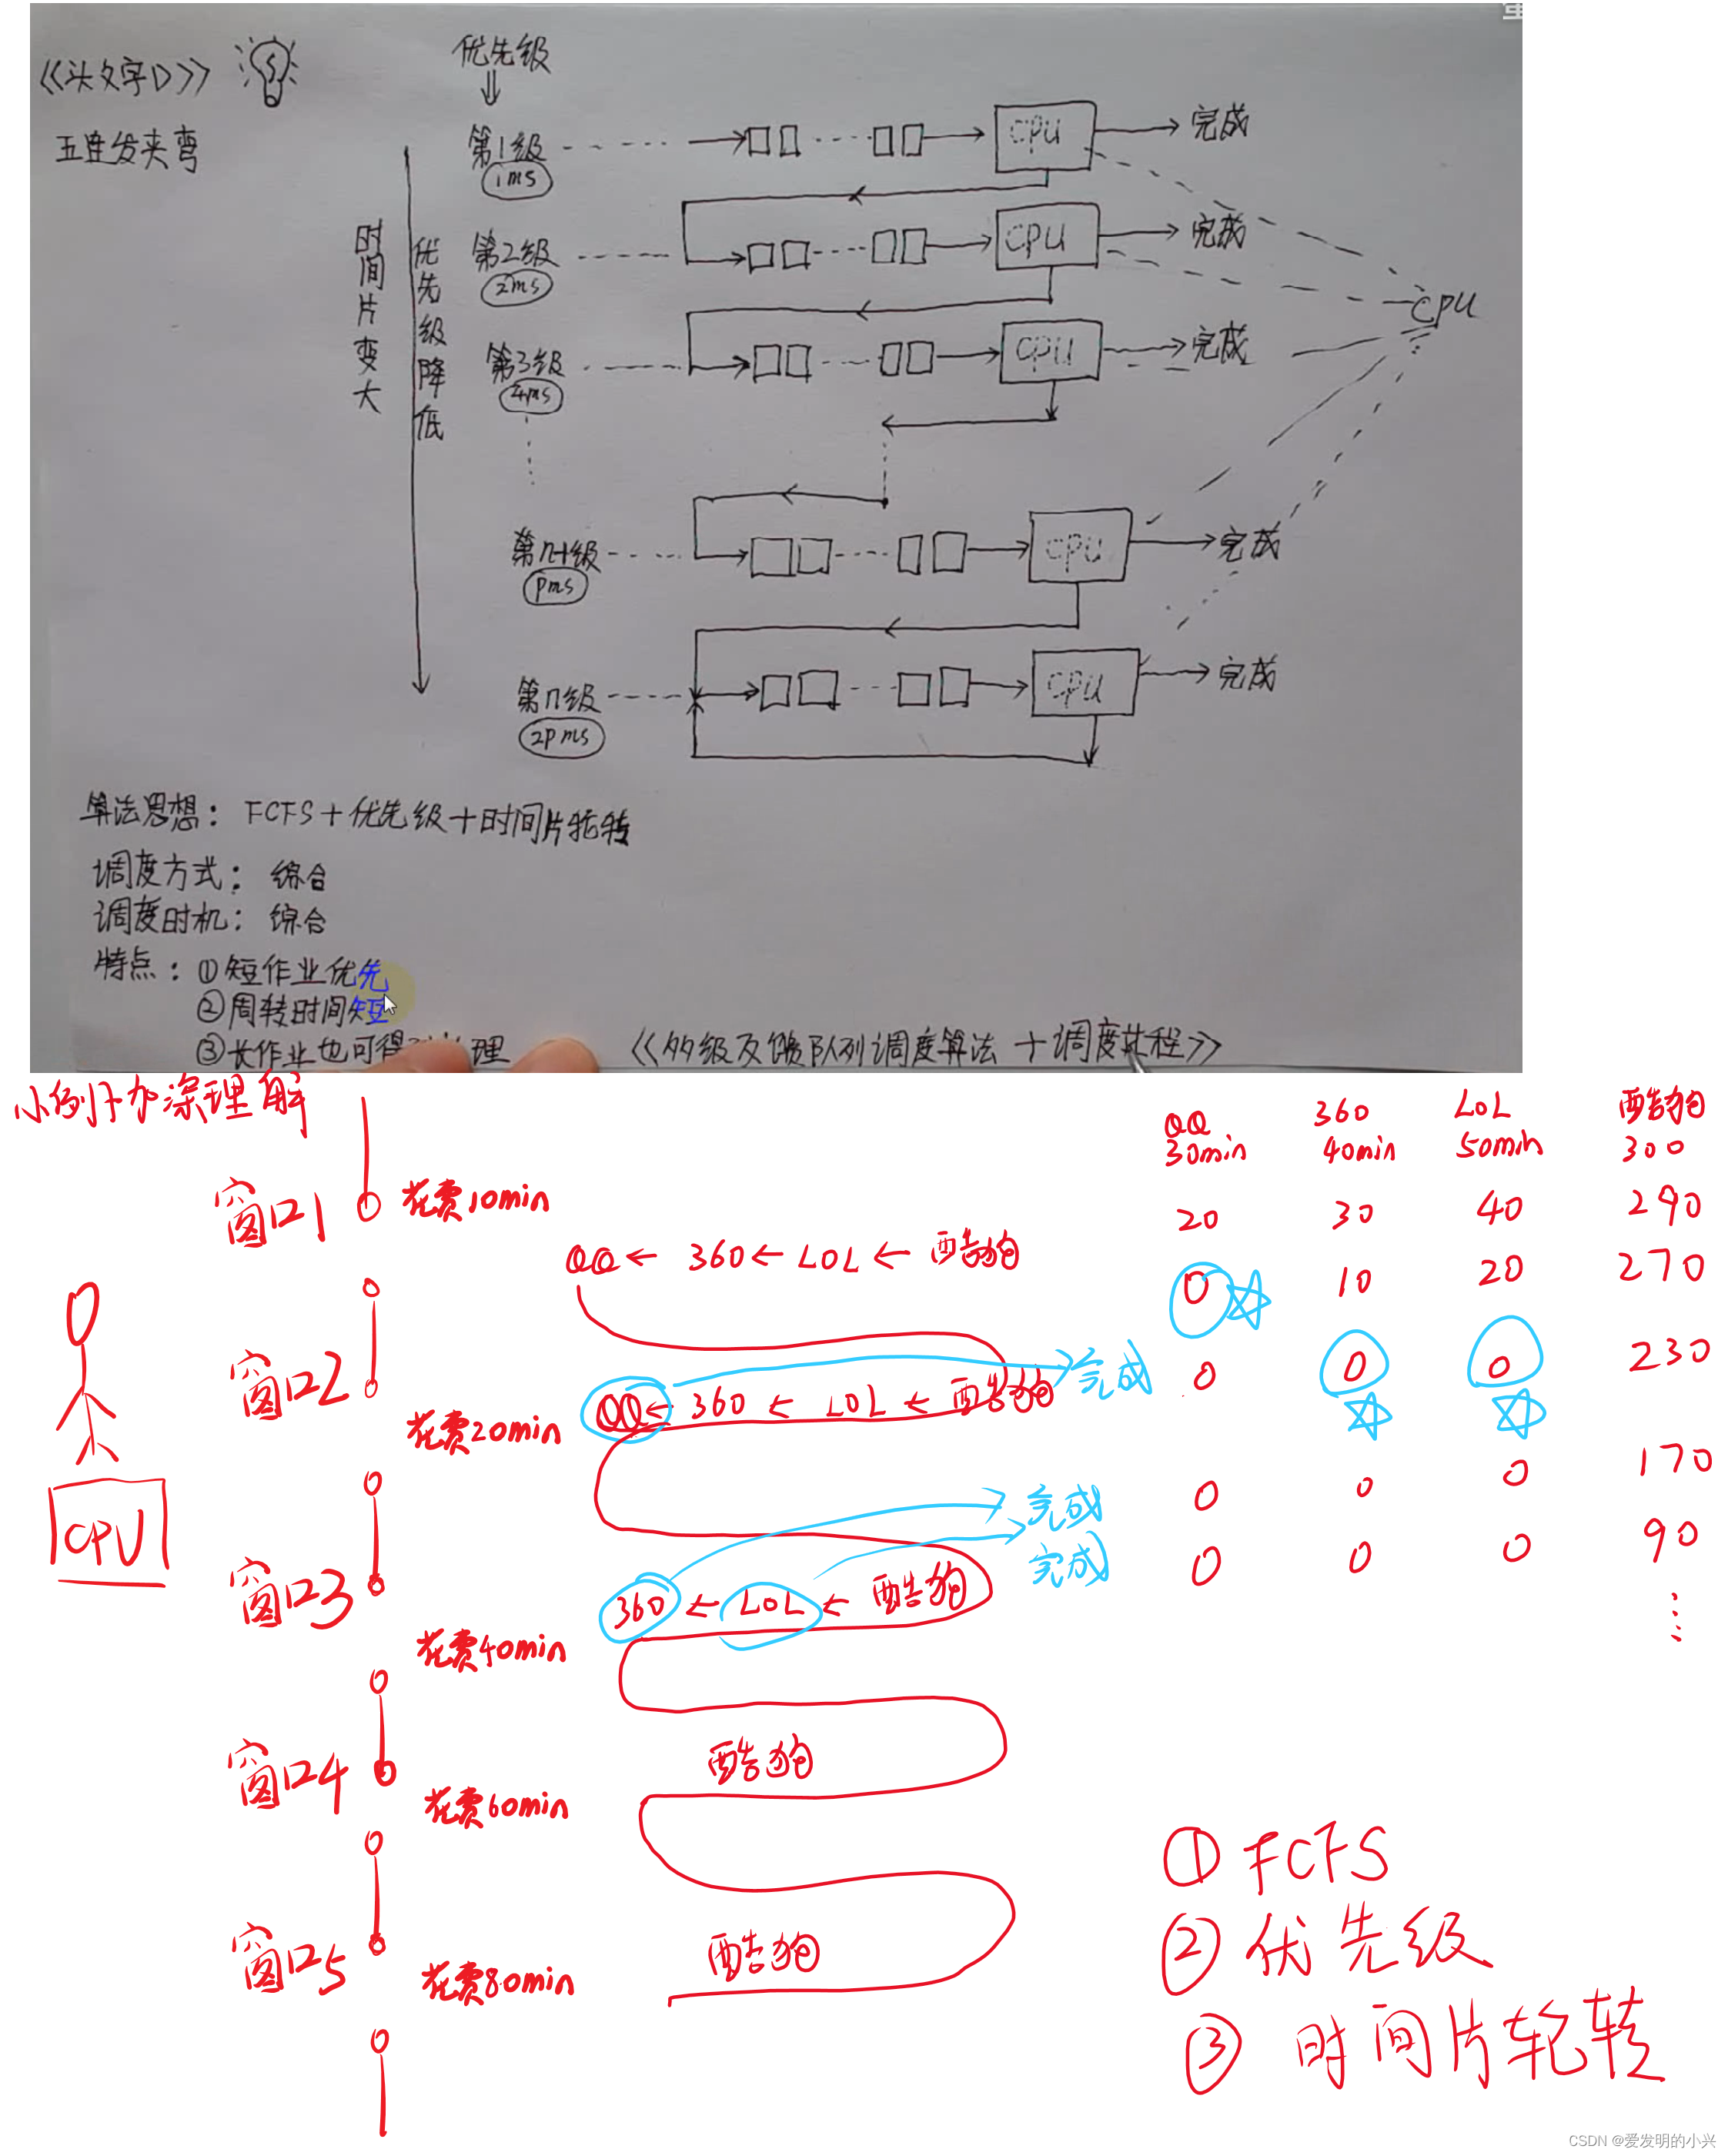 《头文字D》
五连发夹弯
优先级
第1级
1ms
CPU
完成
第2级
2ms
CPU
完成
第3级
4ms
CPU
完成
CPU
时间片变大
优先级降低
第n-1级
pms
CPU
完成
第n级
2pms
CPU
完成
算法思想: FCFS+优先级+时间片轮转
调度方式: 综合
调度时机: 综合
特点: ①短作业优先
②周转时间短
③长作业也可得 理
《多级反馈队列调度算法 + 调度过程》
小例子加深理解
QQ 360 LOL 酷狗
30min 40min 50min 300
20 30 40 290
0 10 20 270
0 0 0 230
0 0 0 170
0 0 0 90
窗口1 花费10min
QQ ← 360 ← LOL ← 酷狗
窗口2 花费20min
QQ ← 360 ← LOL ← 酷狗 完成
CPU
窗口3 花费40min
360 ← LOL ← 酷狗 完成
完成
窗口4 花费60min
酷狗
窗口5 花费80min
酷狗
① FCFS
② 优先级
③ 时间片轮转
CSDN @爱发明的小兴